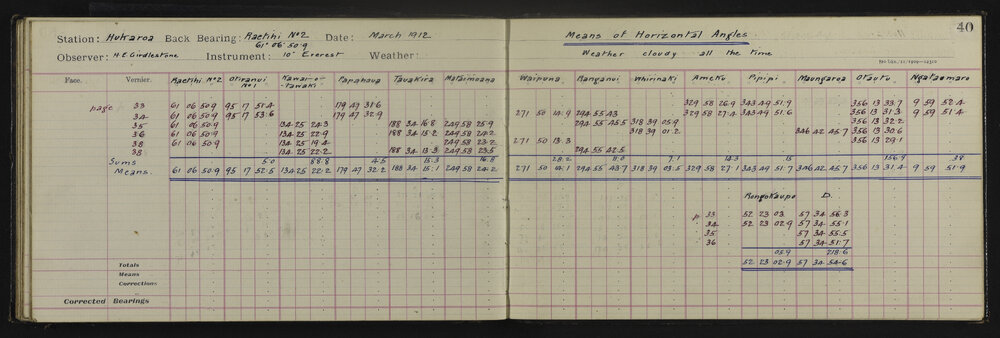 40
Station: Hukaroa Back Bearing: Raetihi Nº2 Date: March 1912 Means of Horizontal Angles
61° 06' 50·9
Observer: H.E. Girdlestone Instrument: 10" Everest Weather: Weather cloudy all the time
Face. Vernier. Raetihi Nº2 Otiranui Nº1 Kawai-o-tawaki Papahaua Tauakira Mataimoana Waipuna Ranganui Whirinaki Ameku Pipipi Maungaroa Otautu Ngataumaro
page 33 61 06 50·9 95 17 51·4 179 47 31·6 329 58 26·9 343 49 51·9 356 13 33·7 9 59 52·4
34 61 06 50·9 95 17 53·6 179 47 32·9 271 50 14·9 294 55 43 329 58 27·4 343 49 51·6 356 13 31·3 9 59 51·4
35 61 06 50·9 134 25 24·3 188 34 16·8 249 58 25·9 294 55 45·5 318 39 05·9 356 13 32·2
36 61 06 50·9 134 25 22·9 188 34 15·2 249 58 24·2 318 39 01·2 346 42 45·7 356 13 30·6
38 61 06 50·9 134 25 19·4 249 58 23·2 271 50 13·3 356 13 29·1
38 134 25 22·2 188 34 13·3 249 58 23·5 294 55 42·5
Sums 5·0 88·8 4·5 15·3 16·8 28·2 11·0 7·1 14·3 15 156·9 3·8
Means. 61 06 50·9 95 17 52·5 134 25 22·2 179 47 32·2 188 34 15·1 249 58 24·2 271 50 14·1 294 55 43·7 318 39 03·5 329 58 27·1 343 49 51·7 346 42 45·7 356 13 31·4 9 59 51·9
Rongokaupo D.
p. 33 52 23 03 57 34 56·3
34 52 23 02·9 57 34 55·1
35 57 34 55·5
36 57 34 51·7
05·9 218·6
52 23 02·9 57 34 54·6
Totals
Means
Corrections
Corrected Bearings